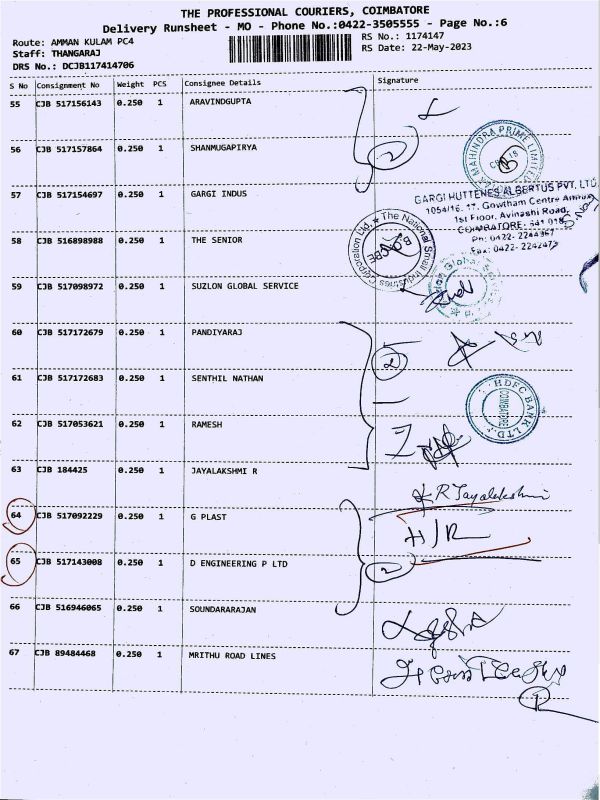 THE PROFESSIONAL COURIERS, COIMBATORE
Delivery Runsheet - MO - Phone No.:0422-3505555 - Page No.:6
Route: AMMAN KULAM PC4
RS No.: 1174147
Staff: THANGARAJ
RS Date: 22-May-2023
DRS No.: DCJB117414706
S No Consignment No Weight PCS Consignee Details Signature
55 CJB 517156143 0.250 1 ARAVINDGUPTA
56 CJB 517157864 0.250 1 SHANMUGAPIRYA
2
MAHINDRA PRIME LIMITED
57 CJB 517154697 0.250 1 GARGI INDUS
GARGI HUTTENES ALBERTUS PVT. LTD.
1054/16, 17, Gowtham Centre Annexe
1st Floor, Avinashi Road,
COIMBATORE - 641 018
Ph: 0422- 2244367
Fax: 0422- 2242473
58 CJB 516898988 0.250 1 THE SENIOR
The National Small Industries Corporation Ltd.
59 CJB 517098972 0.250 1 SUZLON GLOBAL SERVICE
60 CJB 517172679 0.250 1 PANDIYARAJ
2
61 CJB 517172683 0.250 1 SENTHIL NATHAN
HDFC BANK LTD.
COIMBATORE
62 CJB 517053621 0.250 1 RAMESH
63 CJB 184425 0.250 1 JAYALAKSHMI R
R Jayalakshmi
64 CJB 517092229 0.250 1 G PLAST
H/R
65 CJB 517143008 0.250 1 D ENGINEERING P LTD
2
66 CJB 516946065 0.250 1 SOUNDARARAJAN
67 CJB 89484468 0.250 1 MRITHU ROAD LINES
1